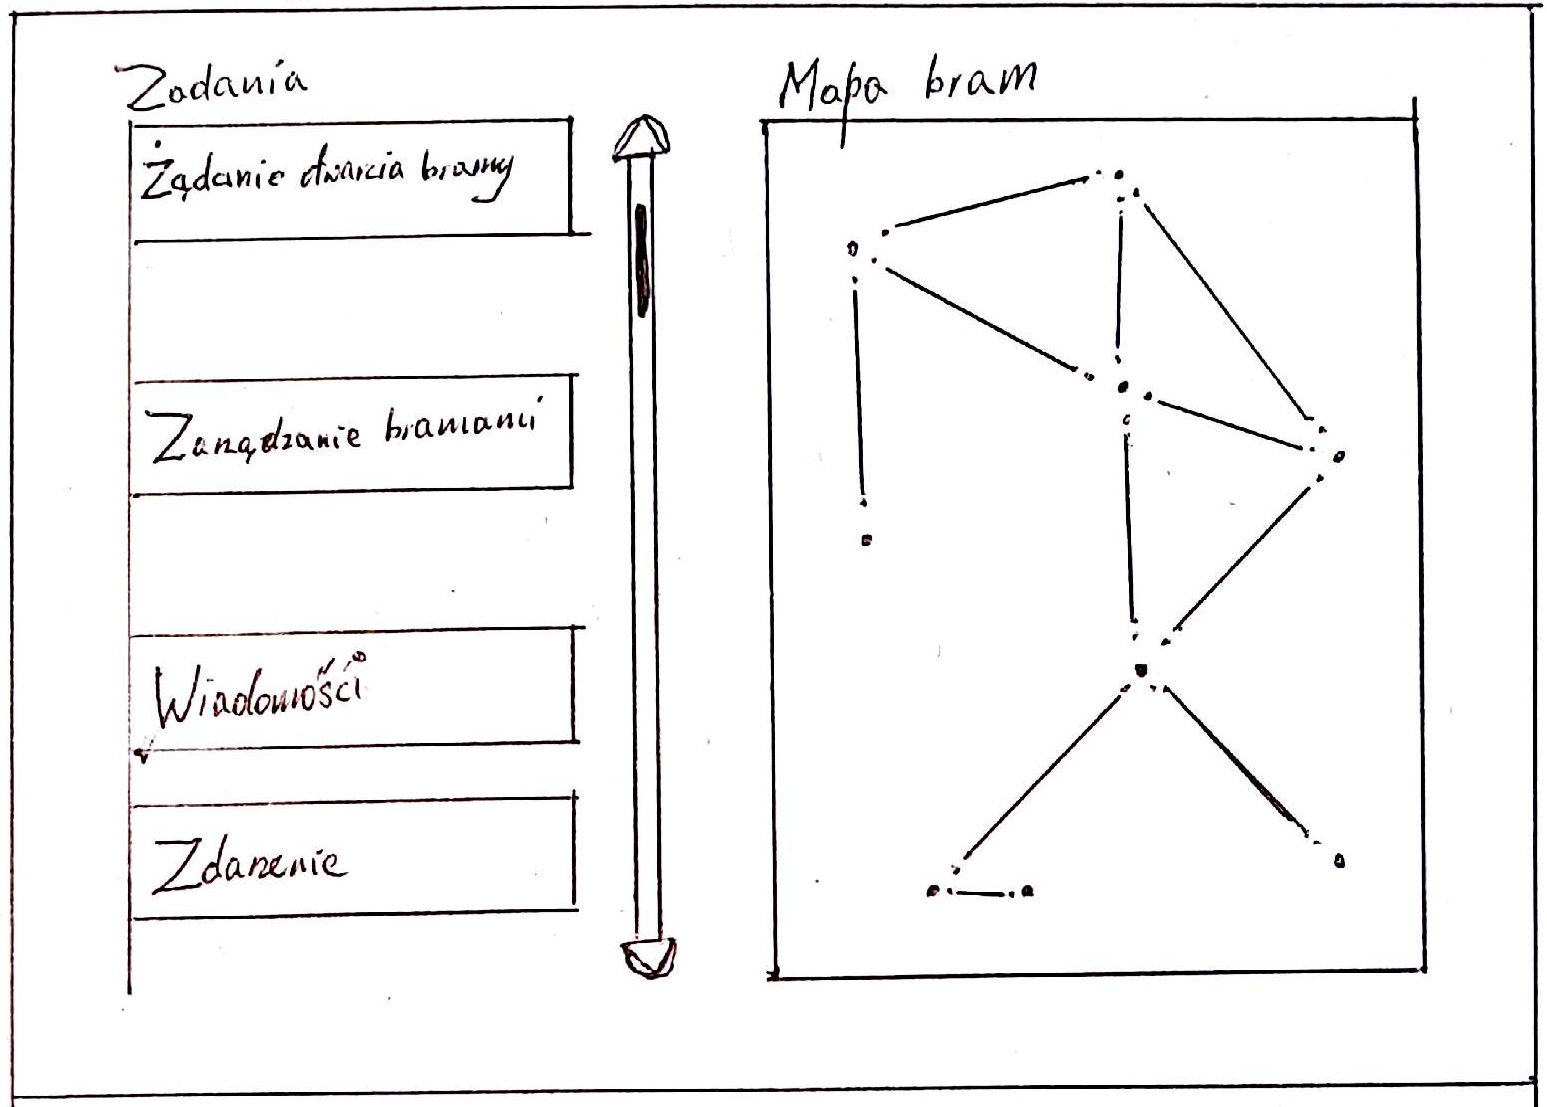 Zadania
Żądanie otwarcia bramy
Zarządzanie bramami
Wiadomości
Zdarzenie
Mapa bram